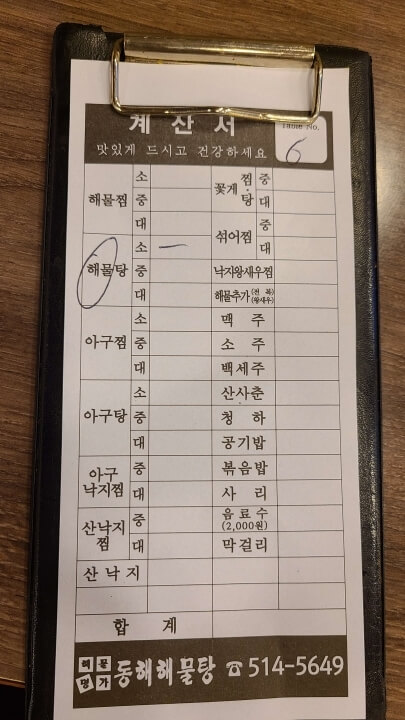 계 산 서
Table No.
맛있게 드시고 건강하세요
6
해물찜 소 중 대
꽃게 찜·탕 중 대
섞어찜 중 대
해물탕 소 一 중 대
낙지왕새우찜
해물추가 (전 복) (왕새우)
아구찜 소 중 대
맥 주
소 주
백세주
아구탕 소 중 대
산사춘
청 하
공기밥
아구 낙지찜 중 대
볶음밥
사 리
산낙지 찜 중 대
음료수 (2,000원)
막걸리
산 낙 지
합 계
해물 명가 동해해물탕 ☎ 514-5649